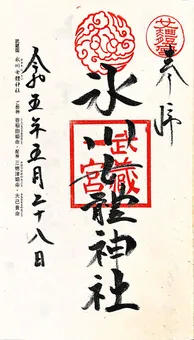 奉拝
氷川女體神社
武蔵
一宮
令和五年五月二十八日
武蔵国 氷川女體神社